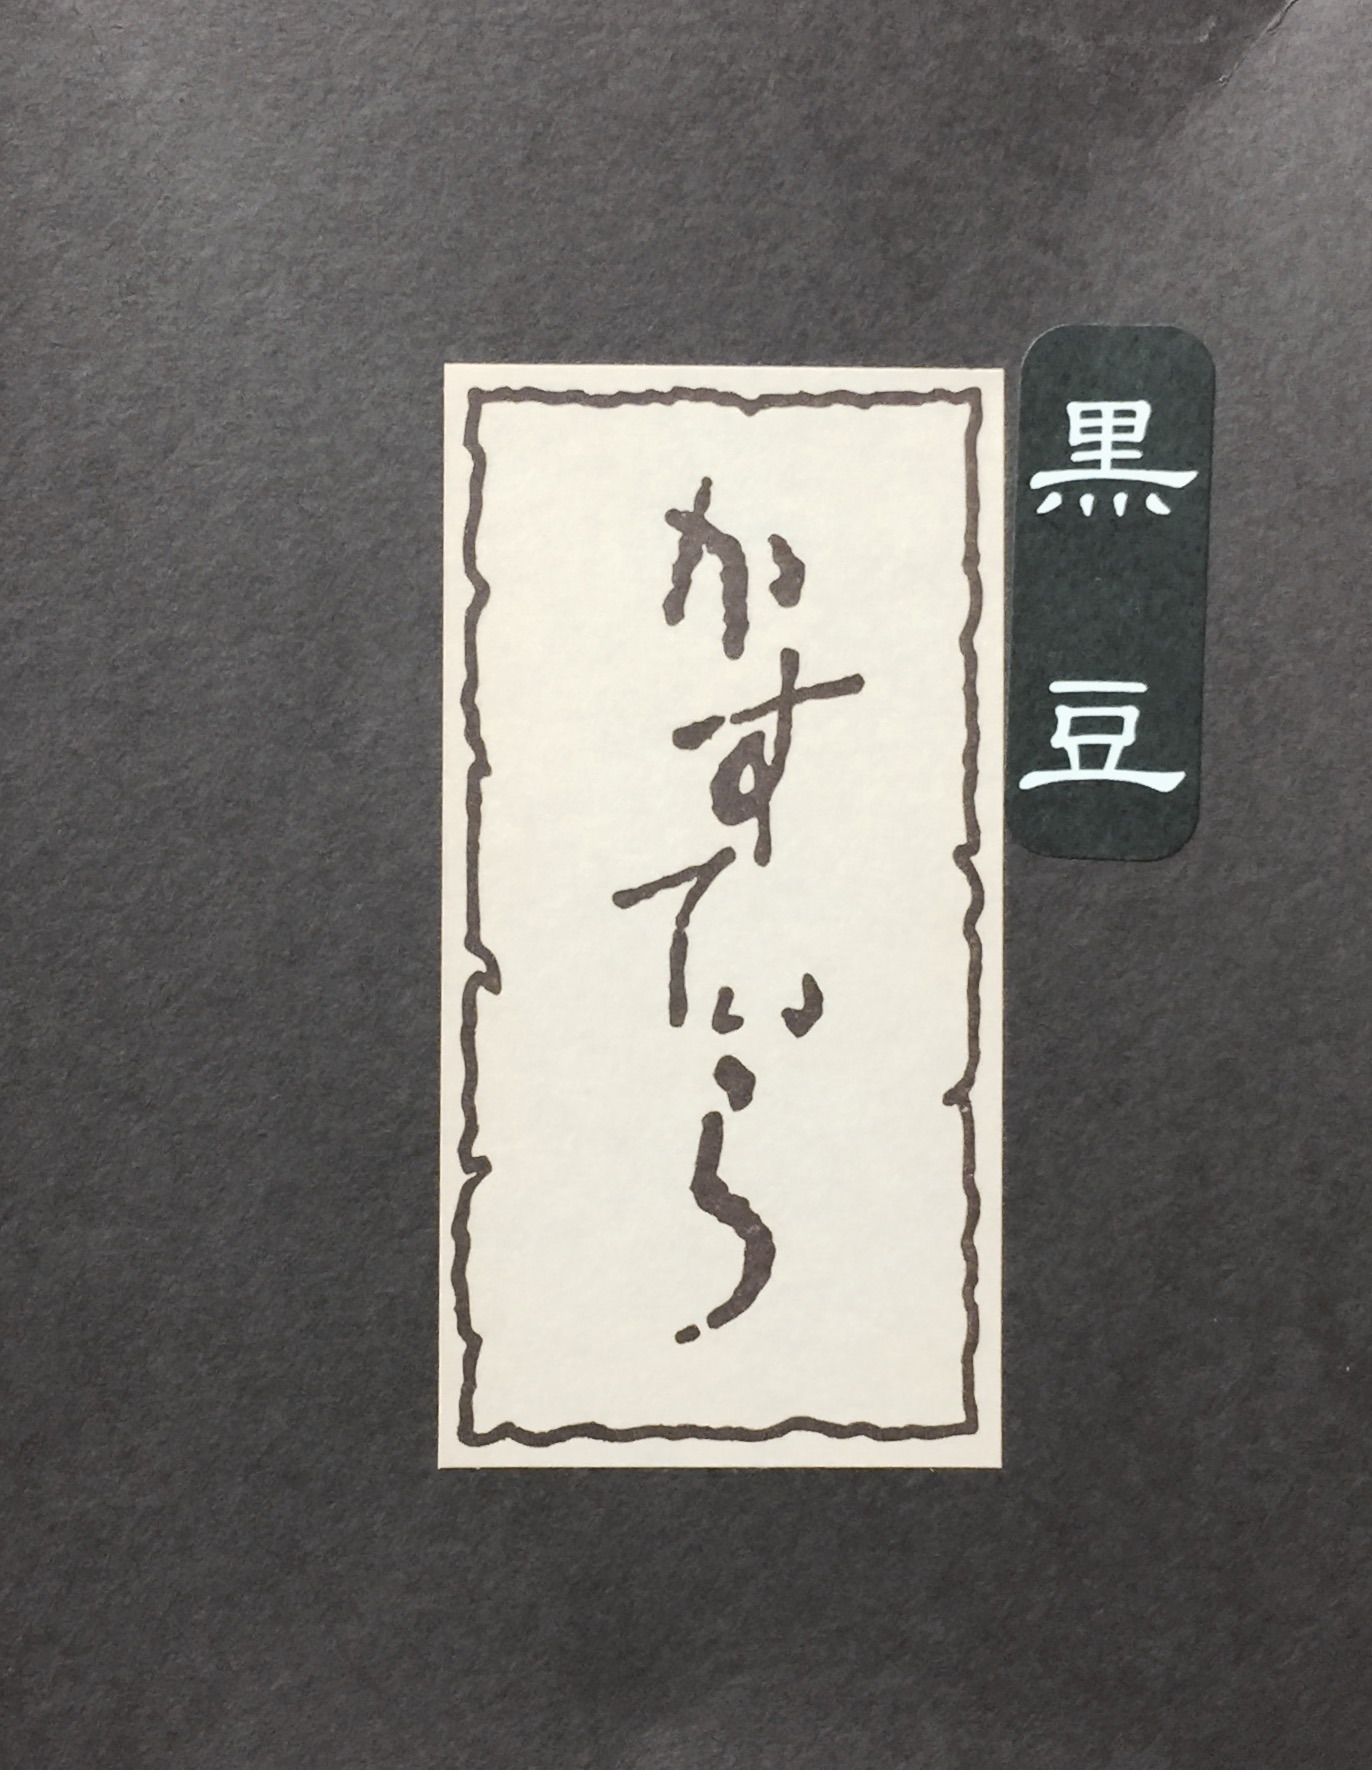 黒豆
かすてぃら